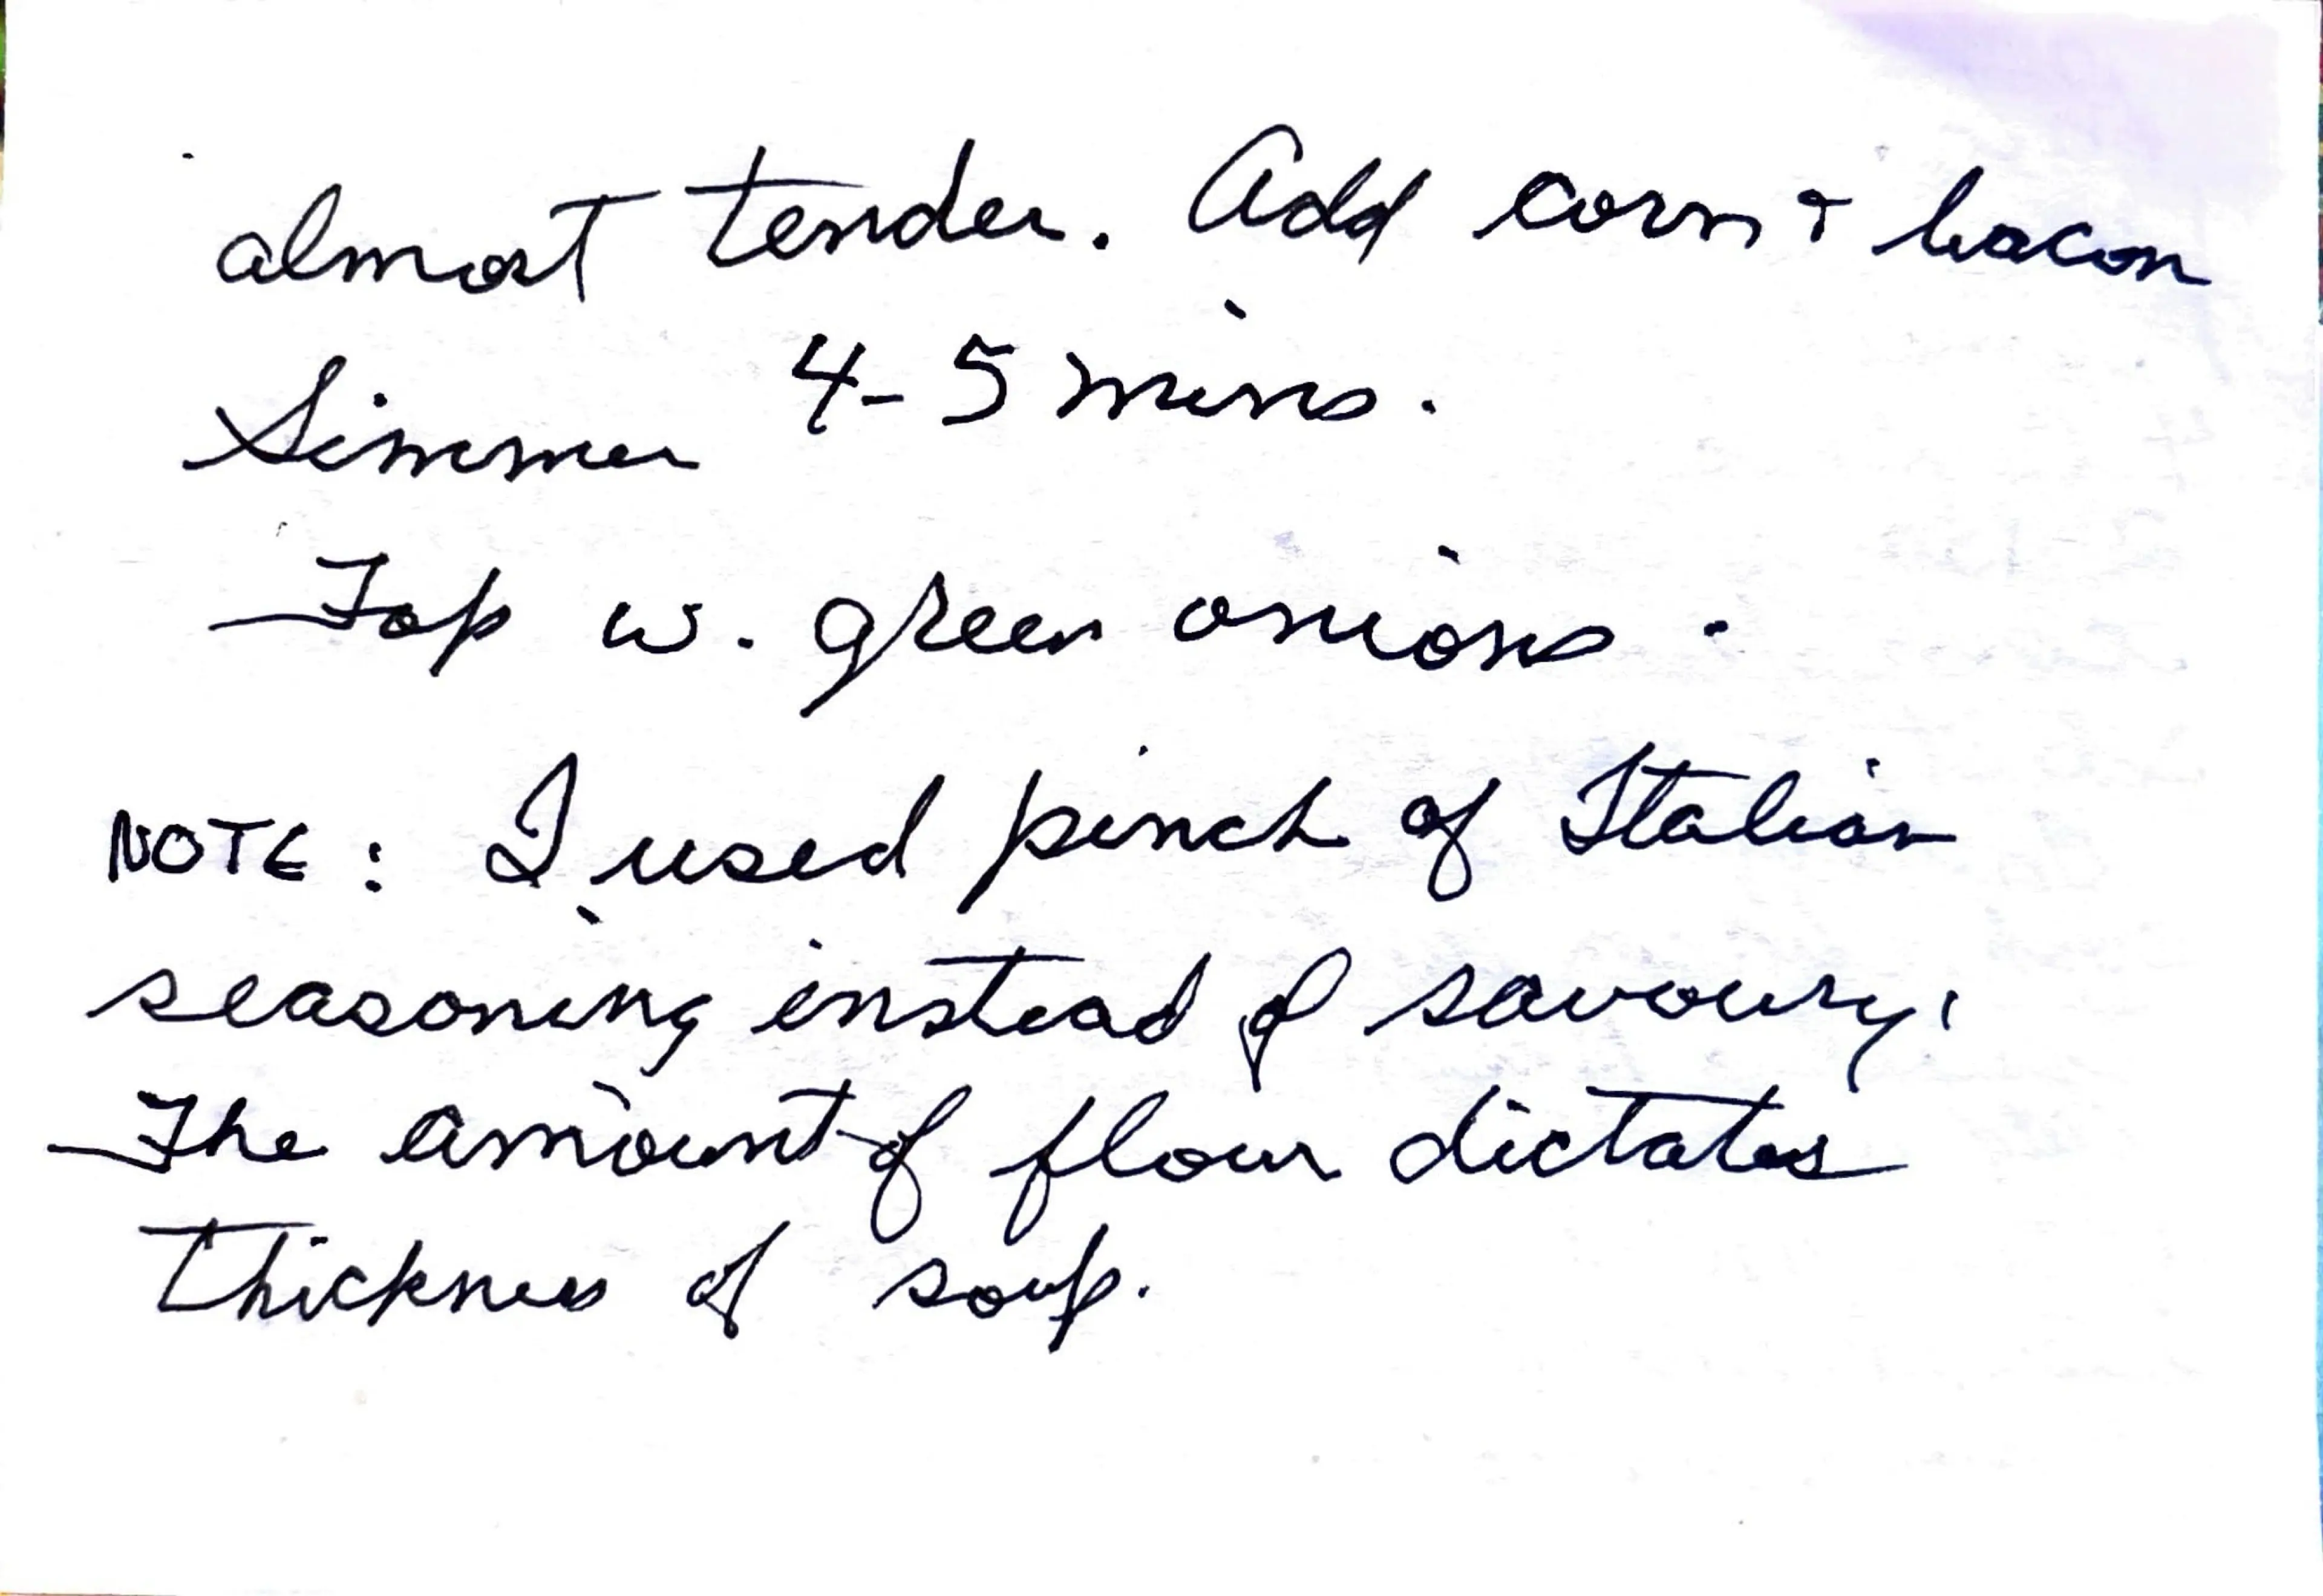 almost tender. Add corn & bacon
Simmer 4-5 mins.
Top w. green onions.
NOTE: I used pinch of Italian
seasoning instead of savoury.
The amount of flour dictates
thickness of soup.